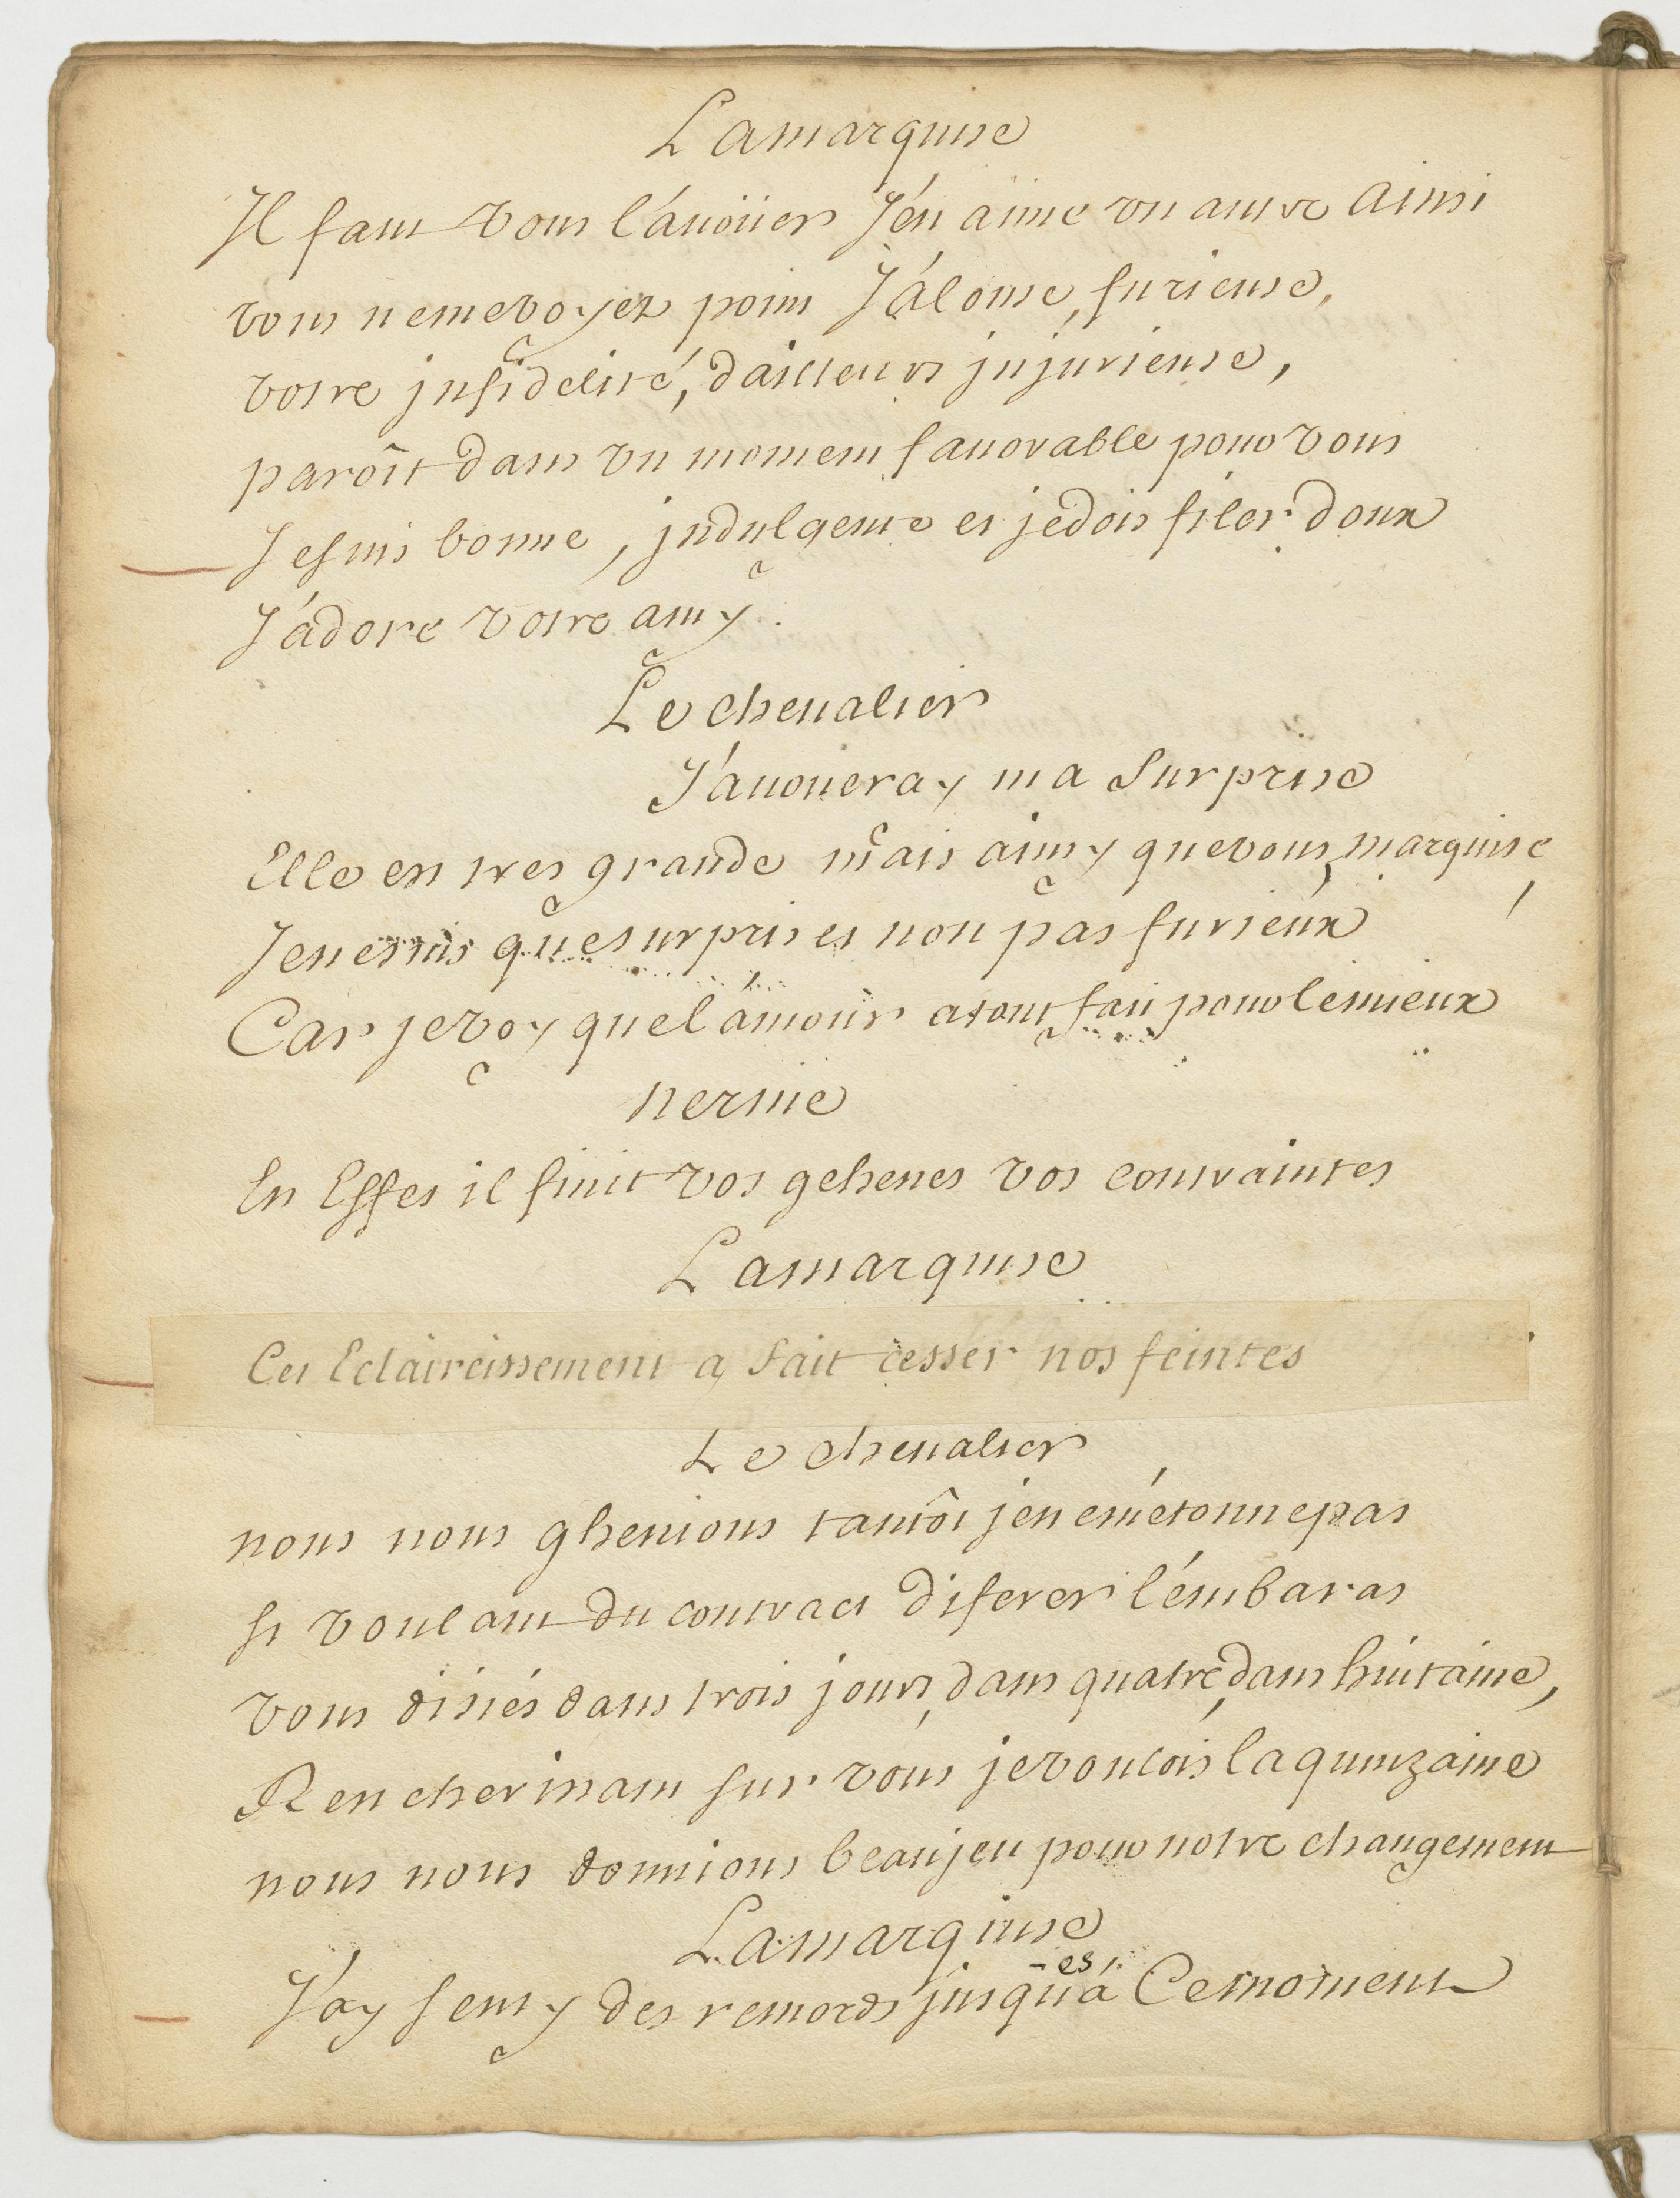 Lamarquise
Il faut vous l'auoüer J'en aime vn autre ainsi
vous nemevoyez point Jálouse, furieuse,
vostre jnfidelité, dailleurs jnjurieuse,
paroît dans vn moment fauorable pour vous
Jesuis bonne, jndulgente et jedois filer doux
J'adore vostre amy.
Le cheualier
J'auoueray ma surprise
Elle est tres grande mais ainsy quevous, marquise,
Jenesuis quesurpris et non pas furieux
Car jevoy quel'amour atout fait pour lemieux
nerine
En Effet il finit vos gehenes vos contraintes
Lamarquise
Cet Eclaircissement a fait cesser nos feintes
Le cheualier
nous nous ghenions tantôt jenem'étonnepas
si voulant du contract diferer l'embaras
vous disiés dans trois jours, dans quatre, dans huitaine,
Rencherissant sur vous jevoulois laquinzaine
nous nous donnions beaujeu pour notre changement
Lamarquise
J'ay senty des remords jusqu'es à Cemoment